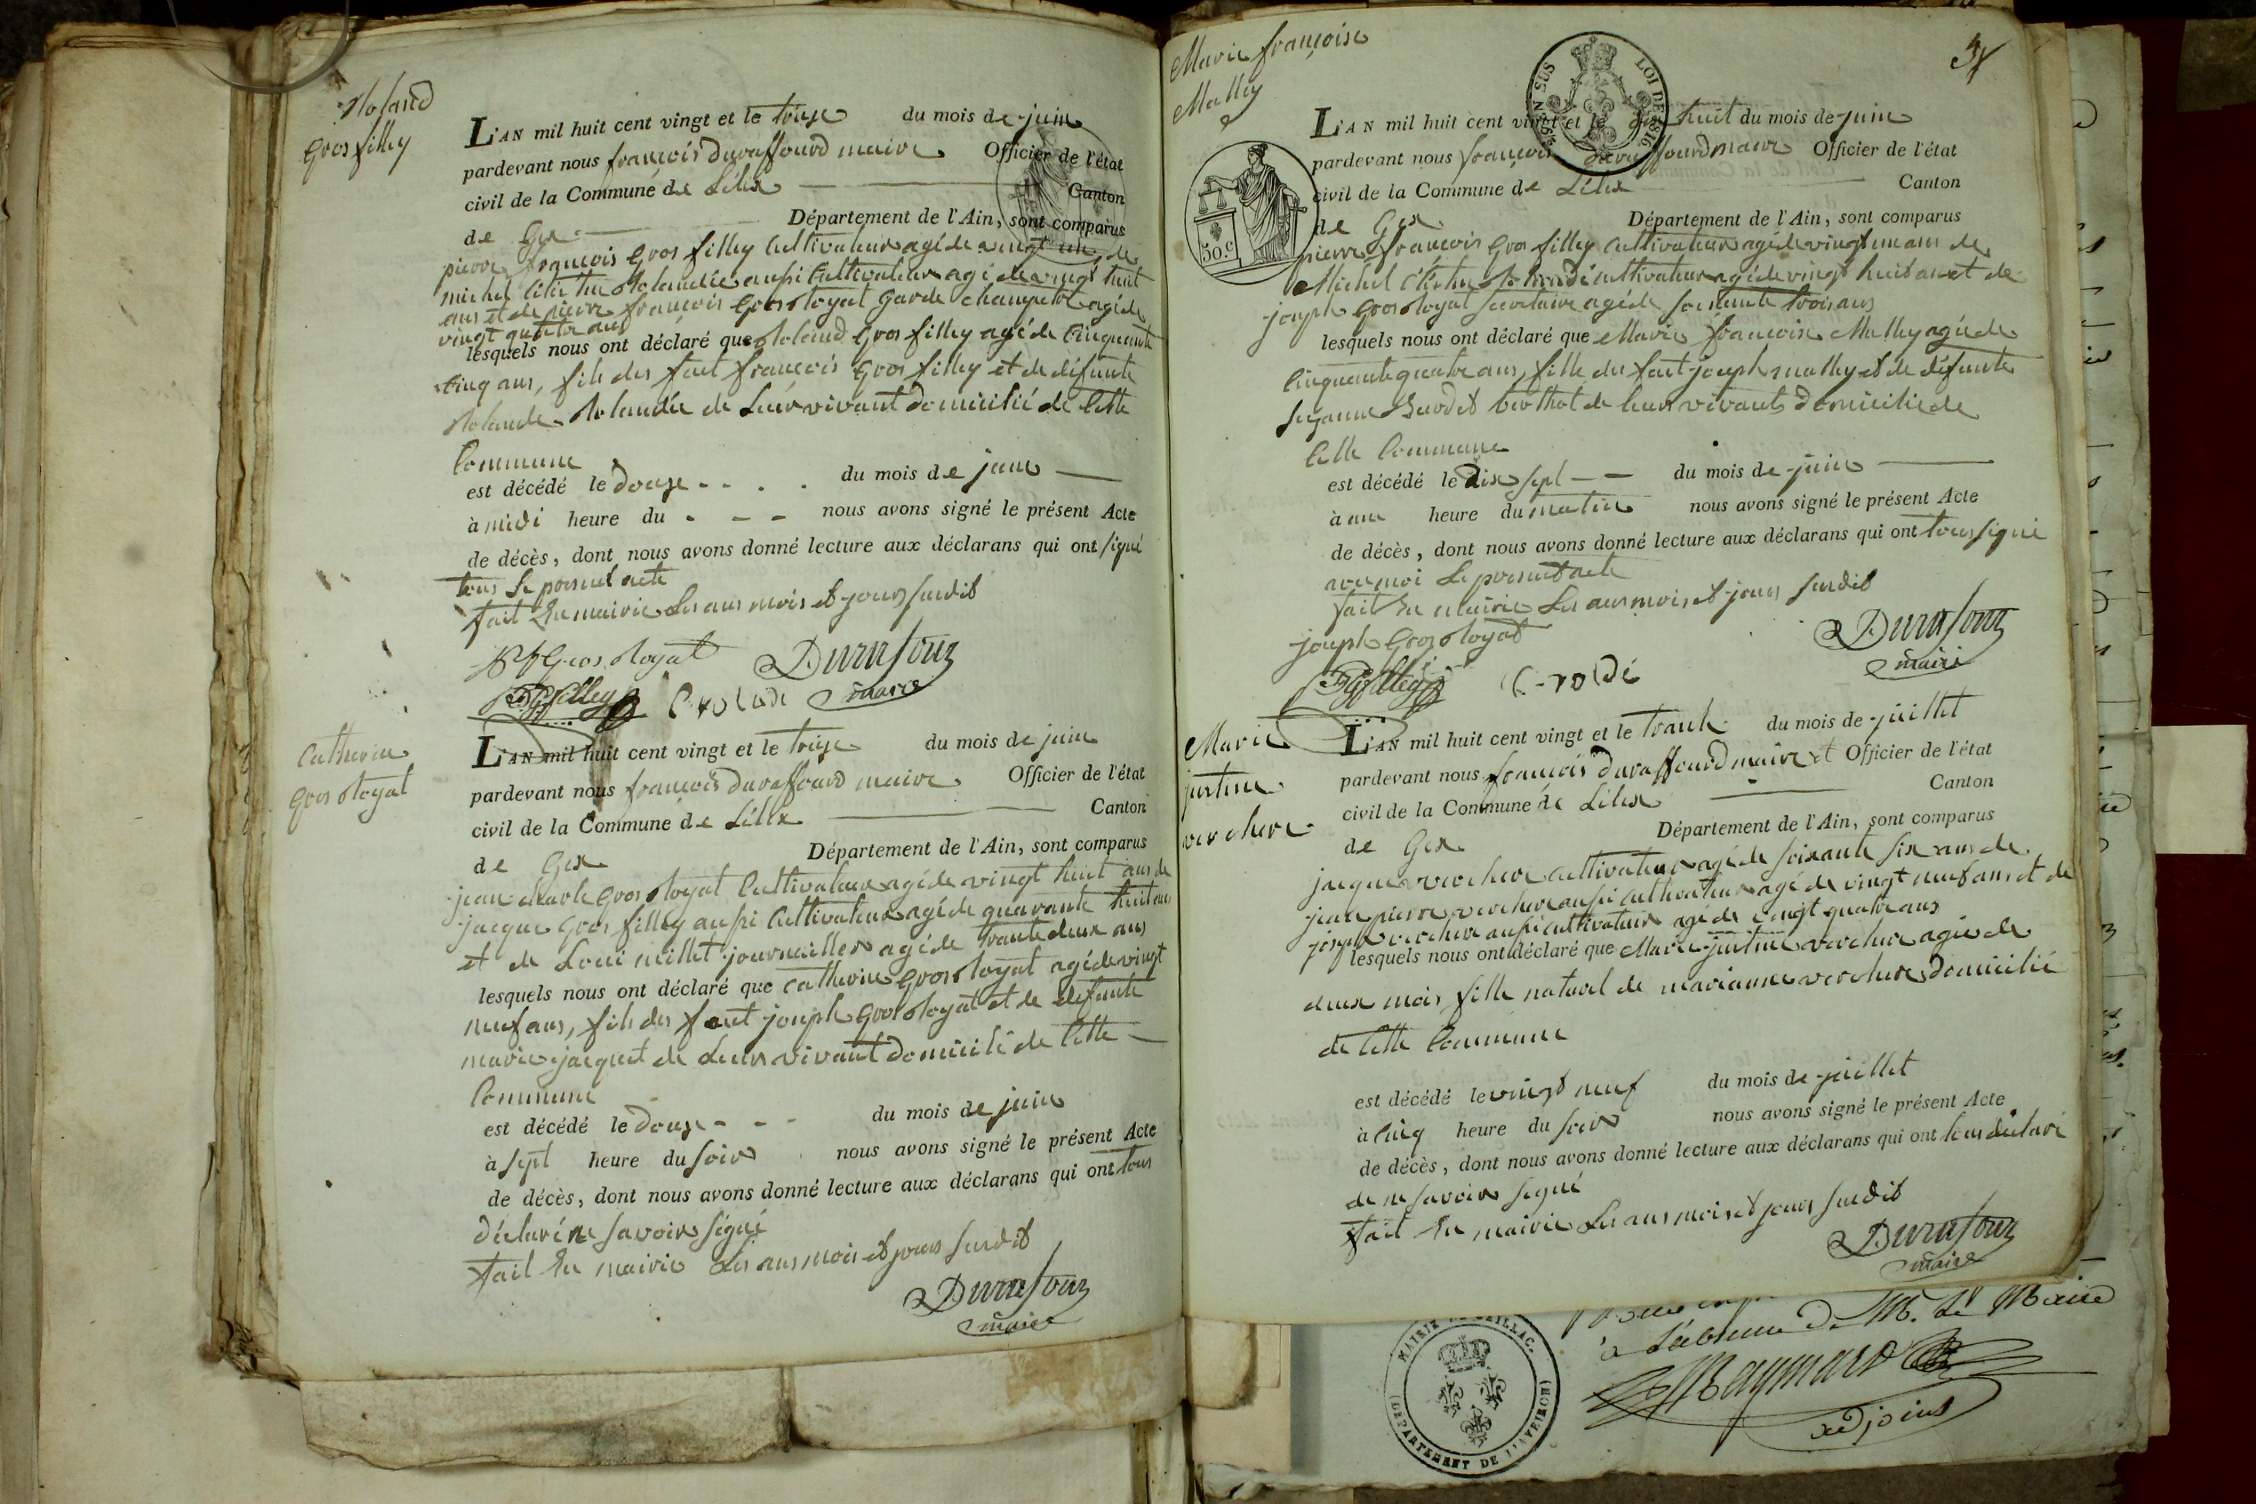 Roland
Gros filley
L'AN mil huit cent vingt et le treize du mois de juin
pardevant nous françois Duraffourd maire Officier de l'état
civil de la Commune de Lélex Canton
de Gex Département de l'Ain, sont comparus
pierre françois Gros filley Cultivateur agé de vingt un, de
michel aussi Cultivateur agé de vingt huit
ans et de pierre françois Gros Royat Garde Champetre agé de
vingt quatre ans
lesquels nous ont déclaré que Roland Gros filley agé de Cinquante
Cinq ans, fils des feut françois Gros filley et de défunte
Rolande Rolandée de Leur vivant domicilié de Cette
Commune
est décédé le douze du mois de juin
à midi heure du - - - nous avons signé le présent Acte
de décès, dont nous avons donné lecture aux déclarans qui ont signé
tous Le present acte
fait En mairie Les ans mois et jours susdit
Gros Royat Durafour
PfGfilley Crolade maire
Catherine
Gros Royat
L'AN mil huit cent vingt et le treize du mois de juin
pardevant nous françois Duraffourd maire Officier de l'état
civil de la Commune de Lélex Canton
de Gex Département de l'Ain, sont comparus
jean Charle Gros Royat Cultivateur agé de vingt huit ans de
jacque Gros filley aussi Cultivateur agé de quarante huit ans
et de Loui millet journaillier agé de trante deux ans
lesquels nous ont déclaré que Catherine Gros Royat agé de vingt
neuf ans, fils des feut joseph Gros Royat et de défunte
marie jacquet de Leur vivant domicilié de Cette
Commune
est décédé le douze - - - du mois de juin
à sept heure du soir nous avons signé le présent Acte
de décès, dont nous avons donné lecture aux déclarans qui ont tous
déclaré ne savoir signé
fait En mairie Les ans mois et jours susdit
Durafour
maire
Marie françoise
Malley
LOI DE 1816
50.c
L'AN mil huit cent vingt et le dix huit du mois de juin
pardevant nous françois Duraffourd maire Officier de l'état
civil de la Commune de Lélex Canton
de Gex Département de l'Ain, sont comparus
pierre françois Gros filley Cultivateur agé de vingt un ans de
Michel cultivateur agé de vingt huit ans et de
joseph Gros Royat secretaire agé de soixante trois ans
lesquels nous ont déclaré que Marie françoise Malley agé de
Cinquante quatre ans, fille des feut joseph malley et de défunte
suzanne berthet de leur vivants domicilié de
Cette Commune
est décédé le dix sept - - du mois de juin
à une heure du matin nous avons signé le présent Acte
de décès, dont nous avons donné lecture aux déclarans qui ont tous signé
avec moi Le present acte
fait En mairie Les ans mois et jours susdit
joseph Gros Royat Durafour
PfGfilley maire
Marie
justine
verchere
L'AN mil huit cent vingt et le trante du mois de juillet
pardevant nous françois Duraffourd maire et Officier de l'état
civil de la Commune de Lélex Canton
de Gex Département de l'Ain, sont comparus
jacques verchere Cultivateur agé de soixante six ans de
jean pierre verchere aussi Cultivateur agé de vingt neuf ans et de
joseph verchere aussi Cultivateur agé de vingt quatre ans
lesquels nous ont déclaré que Marie justine verchere agé de
deux mois fille naturel de marianne verchere domicilié
de Cette Commune
est décédé le vingt neuf du mois de juillet
à Cinq heure du soir nous avons signé le présent Acte
de décès, dont nous avons donné lecture aux déclarans qui ont tous déclaré
de ne savoir signé
fait En mairie Les ans mois et jours susdit
Durafour
maire
à L'absence de M. Le Maire
Raymard
adjoint
MAIRIE
(DÉPARTEMENT DE L'AVEIRON)